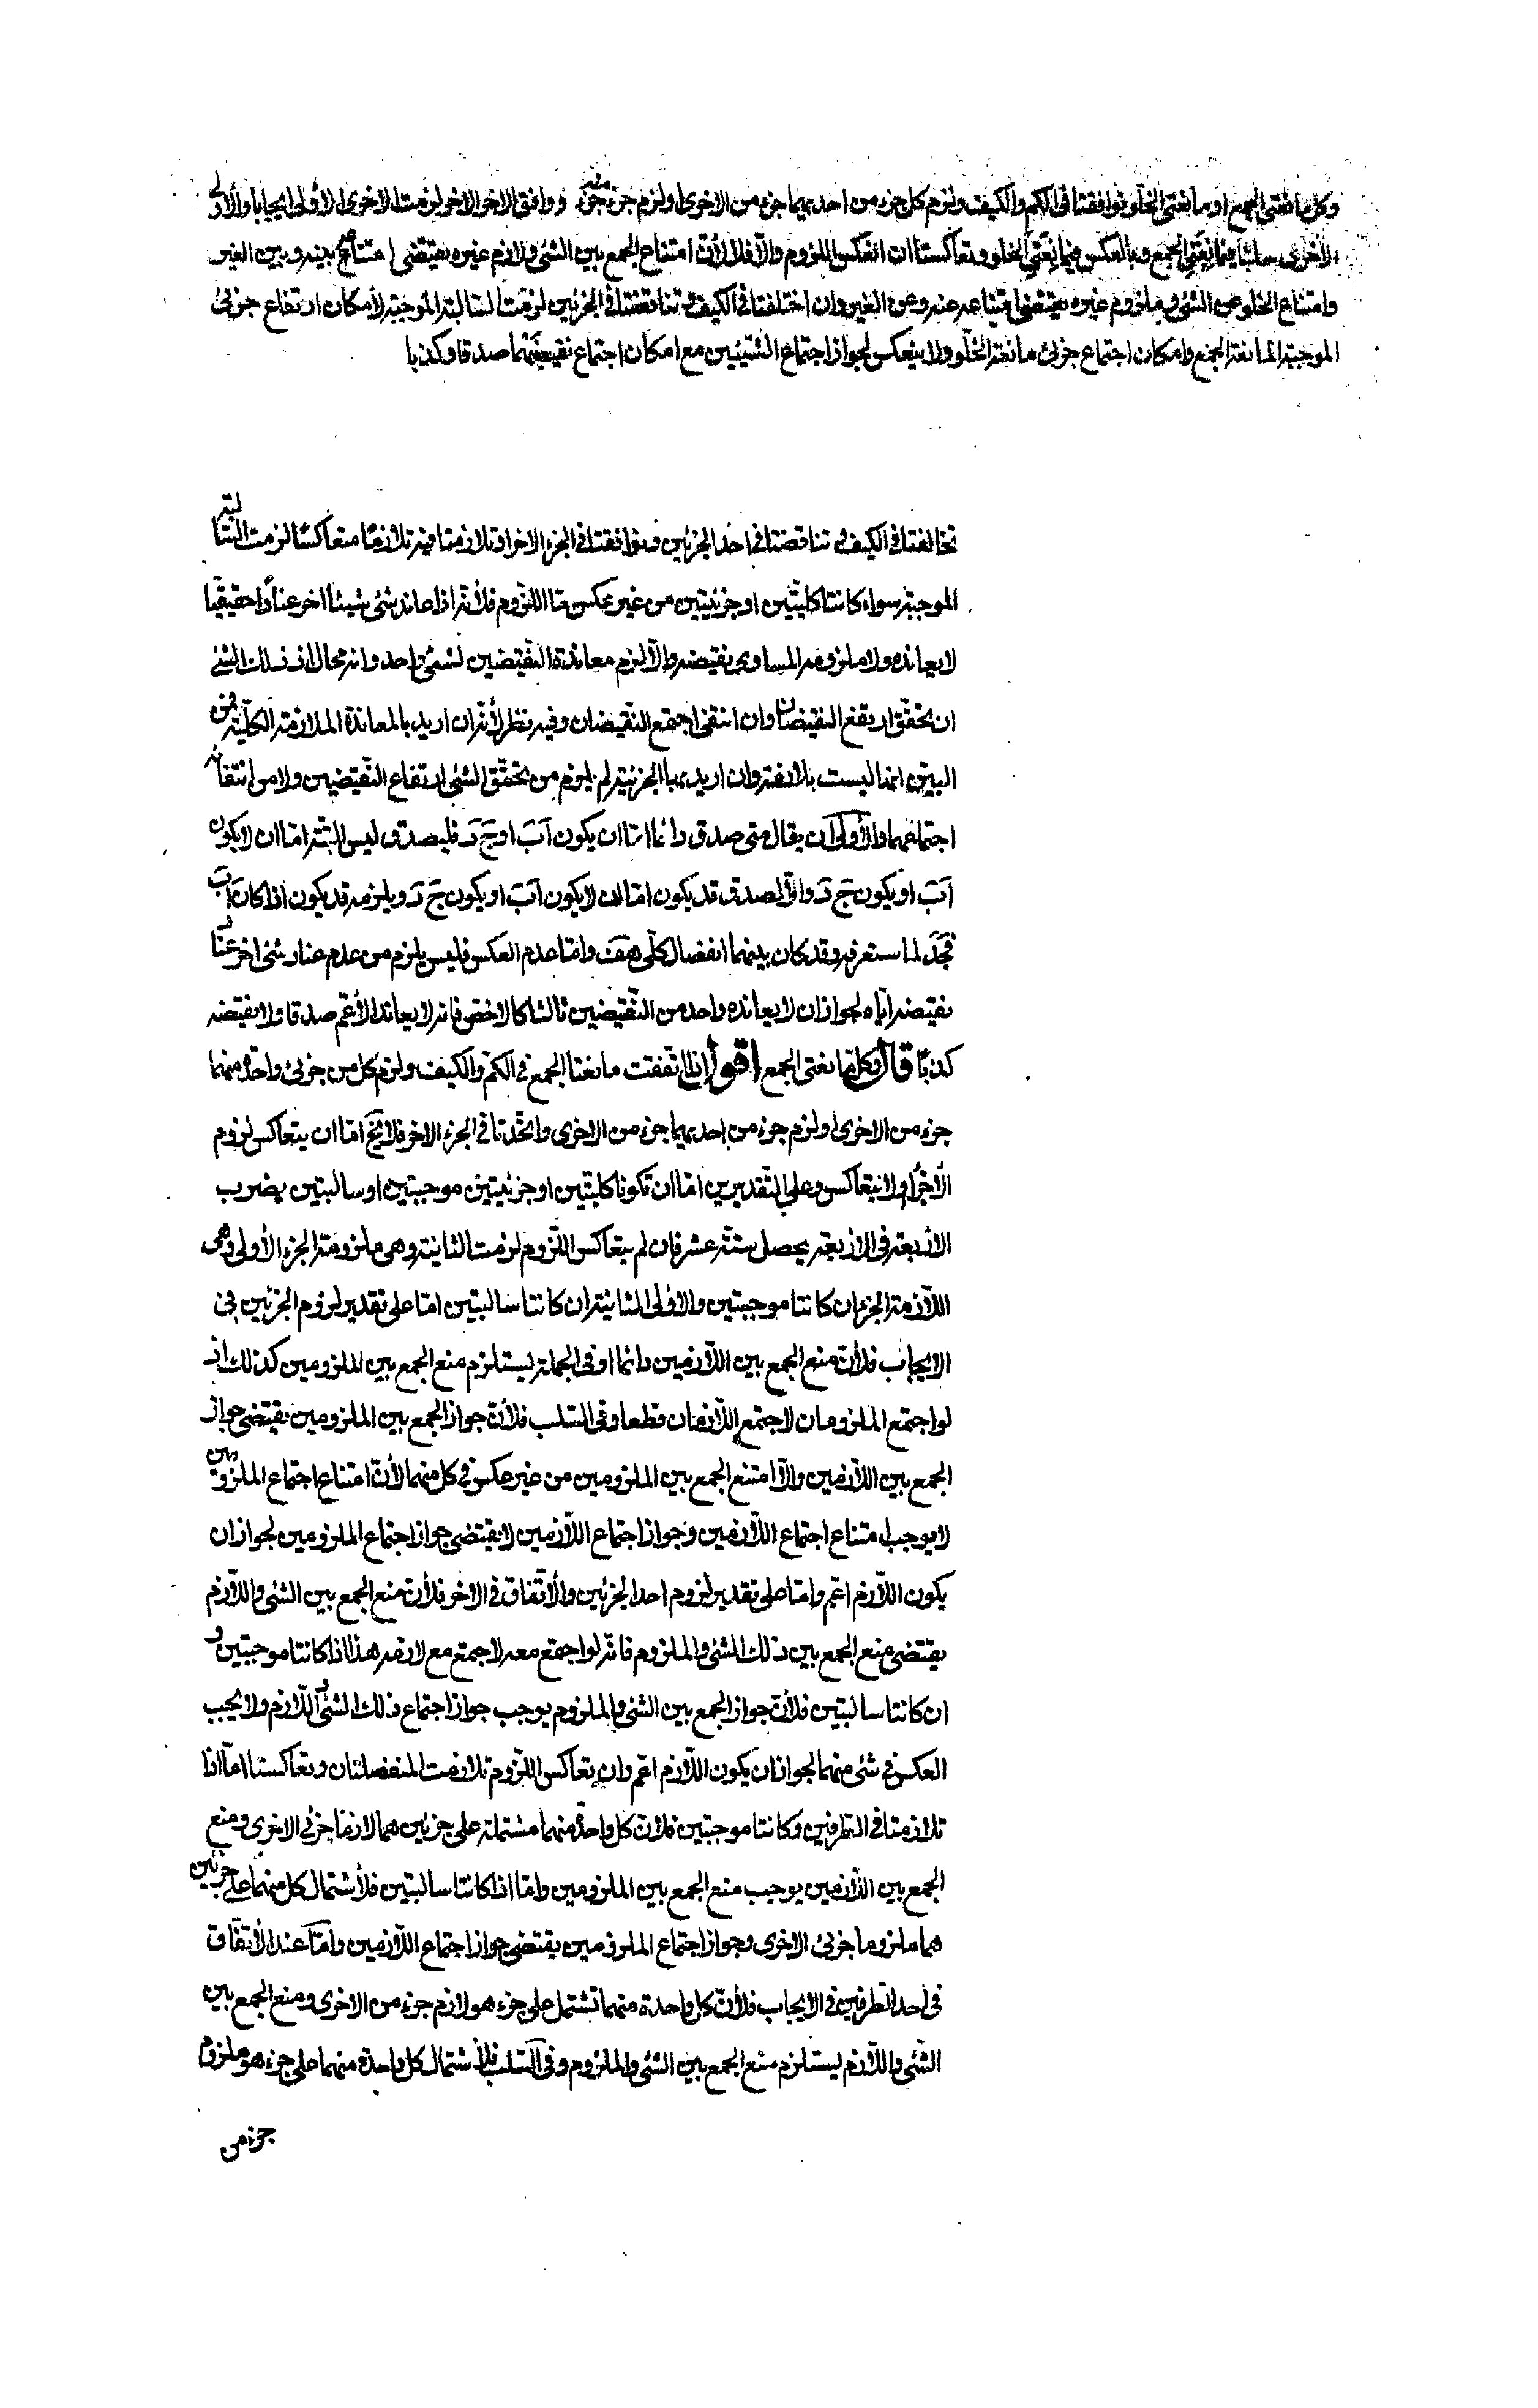 وكل مانعتى الجمع او مانعتى الخلو توافقتا فى الكم والكيف ولزم كل جزء من احديهما جزء من الاخرى او لزم جزء جزء منه ووافق الاخر الاخر لزمت الاخرى الأولى ايجابا والأولى
الاخرى سلبًا فيما نعتى الجمع وبالعكس فيما نعتى الخلو وتعاكستا ان انعكس اللزوم والّا فلا لأنّ امتناع الجمع بين الشئ ولازم غيره يقتضى امتناعه بينه وبين الغير
وامتناع الخلو عن الشئ وملزوم غيره يقتضى امتناعه عنه وعن الغير وان اختلفتا فى الكيف وتناقضتا فى الجزئين لزمت السالبة الموجبة لأمكان ارتفاع جزئى
الموجبة المانعة الجمع وامكان اجتماع جزئى مانعة الخلّو ولا ينعكس لجواز اجتماع الشيئين مع امكان اجتماع نقيضيهما صدقا وكذبا
تخالفتا فى الكيف وتناقضتا فى احد الجزئين وتوافقتا فى الجزء الاخر او تلازمتا فيه تلازمًا متعاكسًا لزمت السّالبة
الموجبة سواء كانتا كليّتين او جزئيتين من غير عكس امّا اللّزوم فلأنّه اذا عاند شئ شيئا اخر عنادًا حقيقيّا
لا يعانده ولا ملزومه المساوى نقيضه والّا لزم معاندة النّقيضين لشئ واحد وانه محال اذ ذلك الشئ
ان تحقّق ارتفع النقيضان وان انتفى اجتمع النّقيضان وفيه نظر لأنّه ان اريد بالمعاندة الملازمة الكلّية فمن
البيّن انها ليست بلازمة وان اريد بها الجزئية لم يلزم من تحقّق الشئ ارتفاع النّقيضين ولا من انتفائه
اجتماعهما والأولى ان يقال متى صدق دائما امّا ان يكون آب او ج د فليصدق ليس البتّة امّا ان لا يكون
آب او يكون ج د والّا لصدق قد يكون امّا ان لا يكون آب او يكون ج د ويلزمه قد يكون اذا كان آب
فج د لما ستعرفه وقد كان بينهما انفصال كلّى هف وامّا عدم العكس فليس يلزم من عدم عناد شئ اخر عناد
نقيضه ايّاه لجواز ان لا يعانده واحد من النّقيضين ثالثا كالاخصّ فانه لا يعاند الأعّم صدقا ولا نقيضه
كذبًا قال وكل مانعتى الجمع اقول اذا اتّفقت مانعتا الجمع فى الكمّ والكيف ولزم كل من جزئى واحدة منهما
جزء من الاخرى او لزم جزء من احديهما جزء من الاخرى واتّحدتا فى الجزء الاخر فلا يخ امّا ان يتعاكس لزوم
الأجزاء او لا يتعاكس وعلى التّقديرين امّا ان تكونا كليّتين او جزئيتين موجبتين او سالبتين يضرب
الأربعة فى الأربعة يحصل ستّة عشر فان لم يتعاكس اللّزوم لزمت الثانية وهى ملزومة الجزء الأولى وهى
اللّازمة الجزء ان كانتا موجبتين والأولى الثانية ان كانتا سالبتين امّا على تقدير لزوم الجزئين فى
الايجاب فلأنّ منع الجمع بين اللّازمين دائما او فى الجملة يستلزم منع الجمع بين الملزومين كذلك اذ
لو اجتمع الملزومان لاجتمع اللّازمان قطعا وفى السّلب فلأنّ جواز الجمع بين الملزومين يقتضى جواز
الجمع بين اللّازمين والّا امتنع الجمع بين الملزومين من غير عكس فى كل منهما لأنّ امتناع اجتماع الملزومين
لا يوجب امتناع اجتماع اللّازمين وجواز اجتماع اللّازمين لا يقتضى جواز اجتماع الملزومين لجواز ان
يكون اللّازم اعّم وامّا على تقدير لزوم احد الجزئين والأتّفاق فى الاخر فلأنّ منع الجمع بين الشئ واللّازم
يقتضى منع الجمع بين ذلك الشئ والملزوم فانّه لو اجتمع معه لاجتمع مع لازمه هذا اذا كانتا موجبتين و
ان كانتا سالبتين فلأنّ جواز الجمع بين الشئ والملزوم يوجب جواز اجتماع ذلك الشئ واللّازم ولا يجب
العكس فى شئ منهما لجواز ان يكون اللّازم اعّم وان تعاكس اللّزوم تلازمت المنفصلتان وتعاكستا امّا اذا
تلازمتا فى الطرفين وكانتا موجبتين فلأنّ كل واحدة منهما مشتملة على جزئين هما لازما جزئى الاخرى ومنع
الجمع بين اللّازمين يوجب منع الجمع بين الملزومين وامّا اذا كانتا سالبتين فلأشتمال كل منهما على جزئين
هما ملزوما جزئى الاخرى وجواز اجتماع الملزومين يقتضى جواز اجتماع اللّازمين وامّا عند الأتفّاق
فى احد الطرفين فى الايجاب فلأنّ كل واحدة منهما تشتمل على جزء هو لازم جزء من الاخرى ومنع الجمع بين
الشّئ واللّازم يستلزم منع الجمع بين الشئ والملزوم وفى السّلب فلأشتمال كل واحدة منهما على جزء هو ملزوم
جزء من